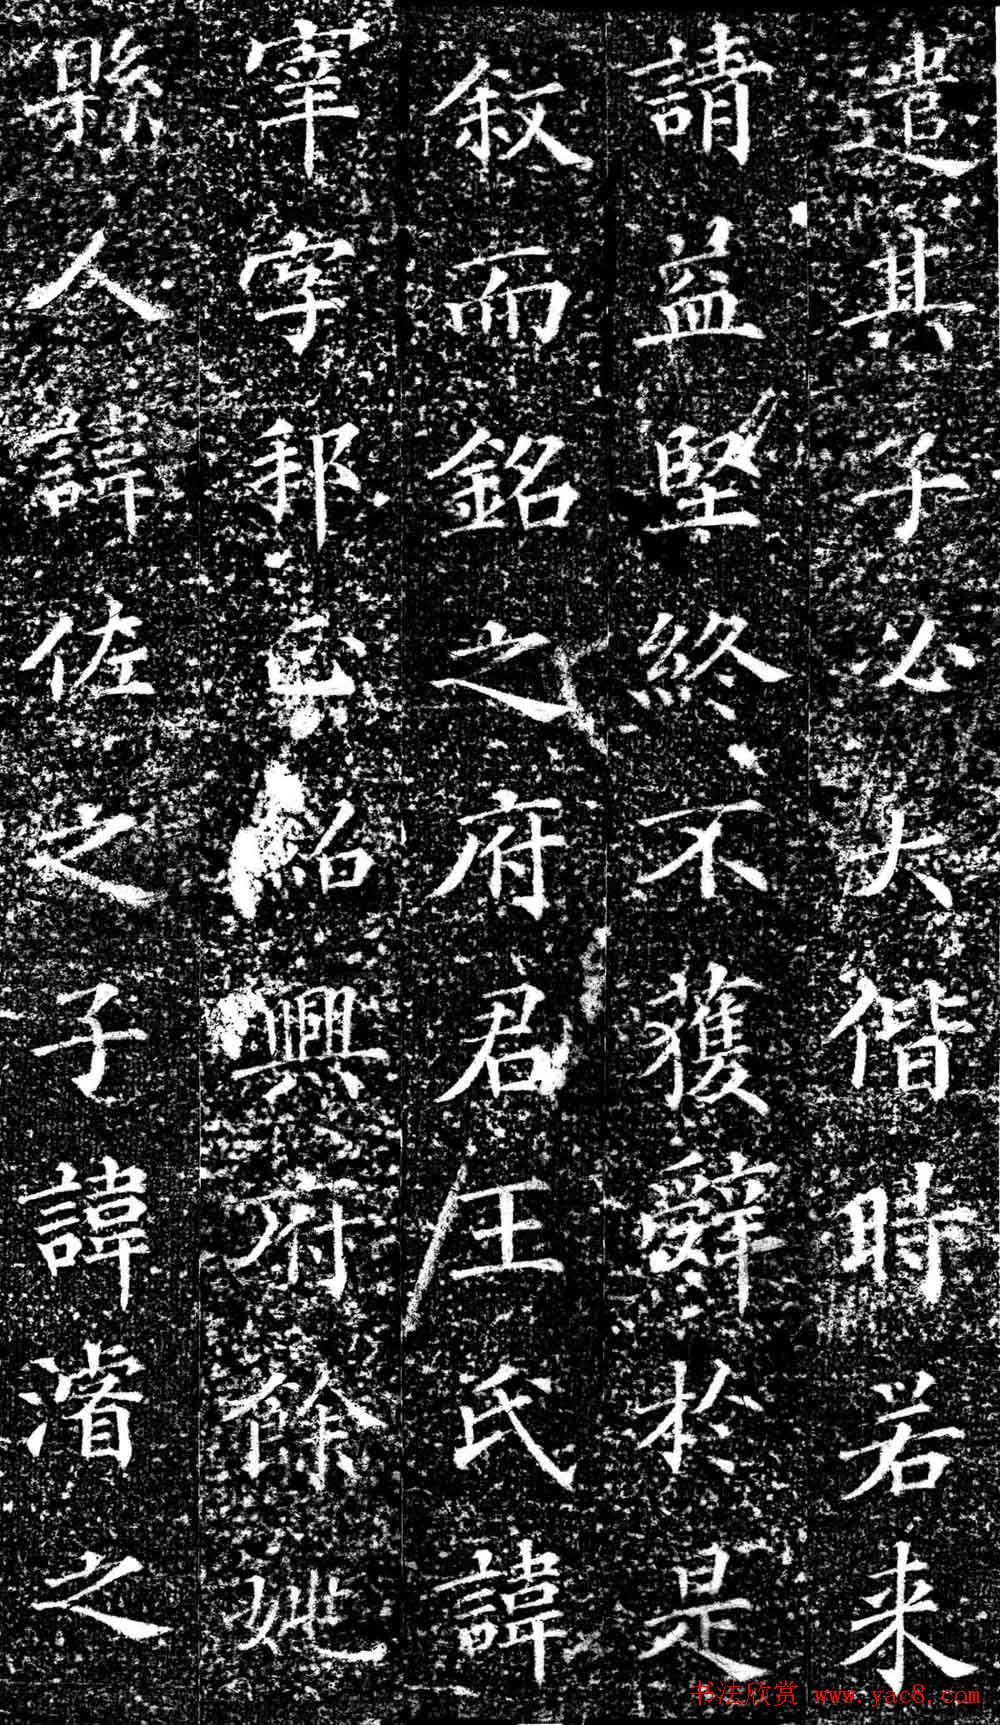 遣其子必大偕時若来
請益堅終不獲辭於是
叙而銘之府君王氏諱
宰字邦正紹興府餘姚
縣人諱佐之子諱濬之
书法欣赏 www.yac8.com